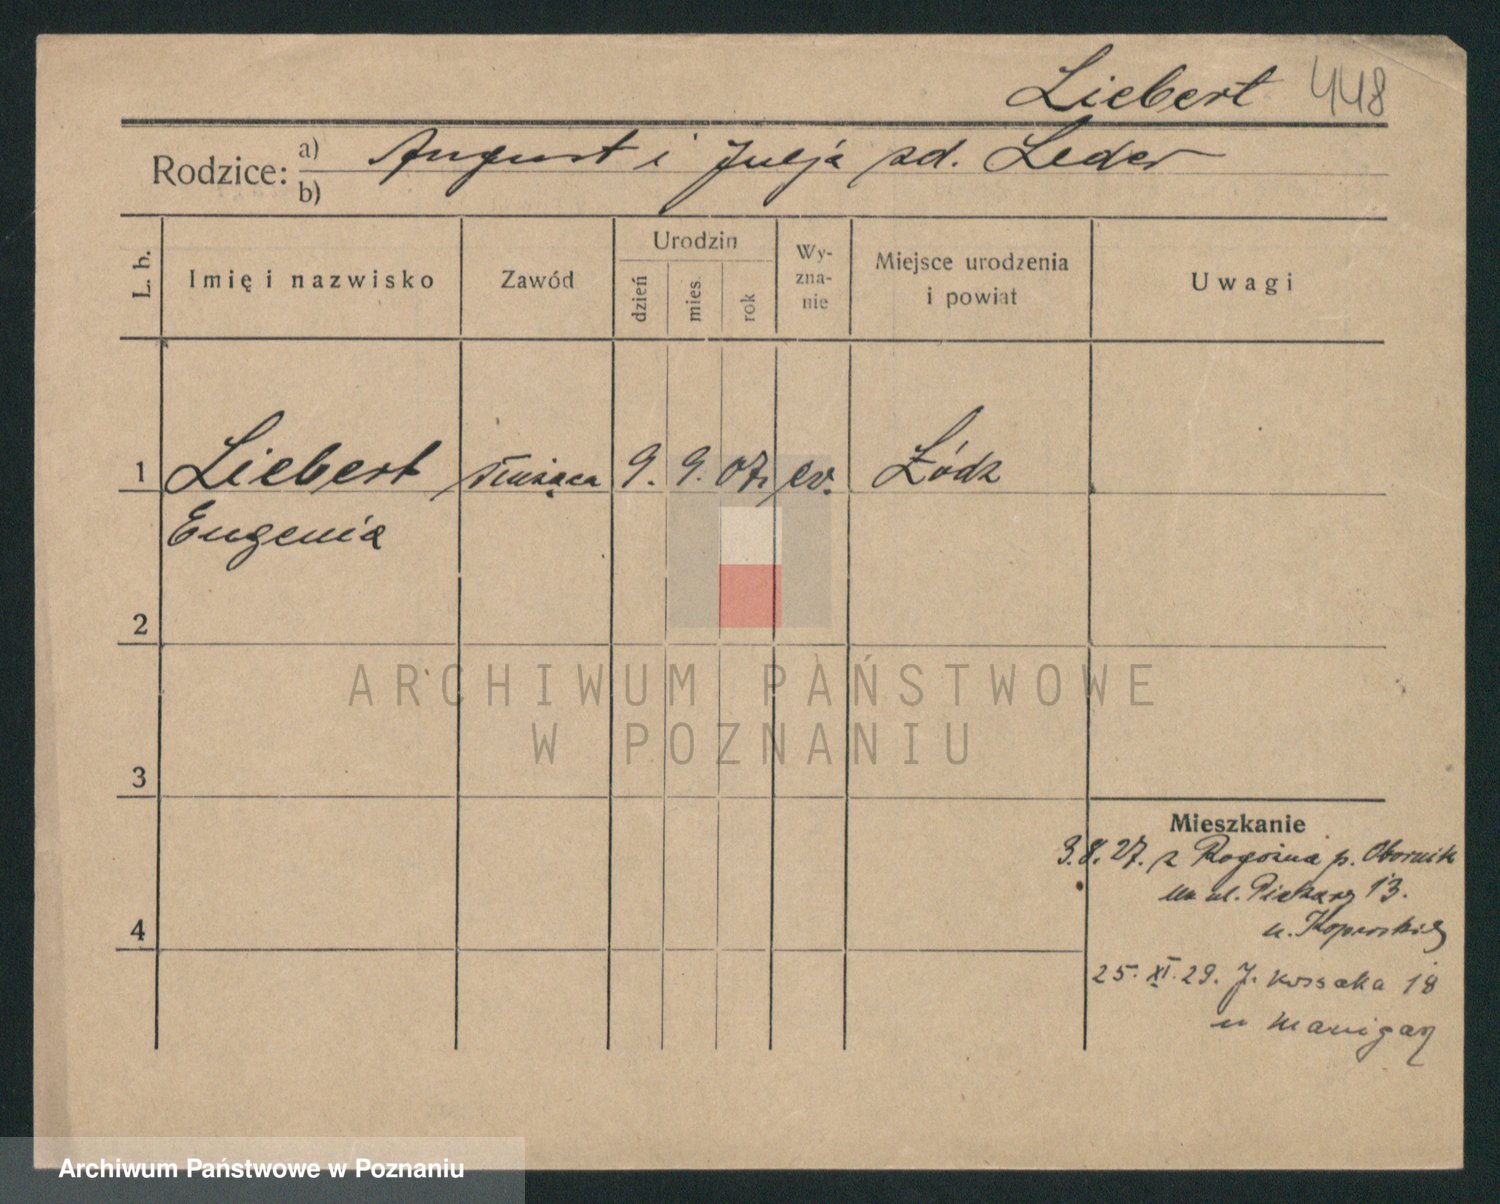 Liebert 448
Rodzice: a) August i Julja zd. Leder
b)
L. b. Imię i nazwisko Zawód Urodzin dzień mies. rok Wyznanie Miejsce urodzenia i powiat Uwagi
1 Liebert służąca 9. 9. 07. ev. Łódz
Eugenia
2
3
4
Mieszkanie
3.8.27. z Rogoźna p. Obornik
na ul. Piekary 13.
u.
25. XI. 29. J. Kossaka 18
u
ARCHIWUM PAŃSTWOWE
W POZNANIU
Archiwum Państwowe w Poznaniu